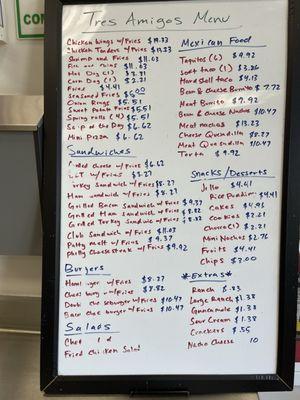 CON
Tres Amigos Menu
Chicken wings w/Fries $11.33
Chicken Tenders w/Fries $11.33
Shrimp and Fries $11.03
$11.03
Hot Dog (1) $2.21
Corn Dog (1) $2.21
Fries $4.41
Seasoned Fries $5.00
Onion Rings $5.51
Sweet Potato Fries $5.51
Spring rolls (4) $5.51
Soup of the Day $6.62
Mini Pizza $6.62
Sandwiches
Grilled cheese w/Fries $6.62
BLT w/Fries $7.27
Turkey Sandwich w/Fries $8.27
Ham Sandwich w/Fries $8.27
Grilled Bacon Sandwich w/Fries $9.37
Grilled Ham Sandwich w/Fries $8.82
Grilled Turkey Sandwich w/Fries $8.82
Club Sandwich w/Fries $11.03
Patty melt w/Fries $9.37
Philly Cheesesteak w/Fries $9.92
Burgers
Hamburger w/Fries $8.27
Cheeseburger w/Fries $8.82
Double cheeseburger w/Fries $10.47
Bacon cheeseburger w/Fries $10.47
Salads
Chef
Fried Chicken Salad
Mexican Food
Taquitos (6) $9.92
Soft taco (1) $3.86
Hard shell taco $4.13
Bean & cheese Burrito $7.72
Meat Burrito $7.92
Bean & cheese Nachos $10.47
Meat nachos $13.23
Cheese Quesadilla $8.27
Meat Quesadilla $10.47
Torta $9.92
Snacks/Desserts
Jello $4.41
Rice Pudding $4.41
Cakes $4.95
Cookies $2.21
Churro (1) $2.21
Mini Nachos $2.76
Fruits $4.41
Chips $2.00
*Extras*
Ranch $.83
Large Ranch $1.38
Guacamole $1.38
Sour Cream $1.38
Crackers $.55
Nacho Cheese 10